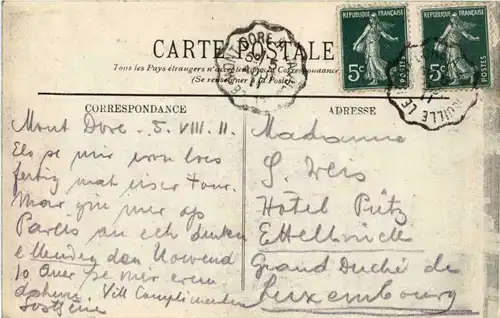 CARTE POSTALE
Tous les Pays étrangers n'acceptent pas la Correspondance
(Se renseigner à la Poste)
RÉPUBLIQUE FRANÇAISE
5c
POSTES
RÉPUBLIQUE FRANÇAISE
5c
POSTES
CORRESPONDANCE
Mont Dore - 8. VIII. 11.
Elo se mir vun hei
fertig mat iser Tour.
Mar gin mer op
Paris an ech denken
e Mendeg den Nowend
10 Auer se mer erem
doheem. Vill Complimenten
ADRESSE
Madame
S. Weis
Hôtel Pütz
Ettelbrück
Grand Duché de
Luxembourg